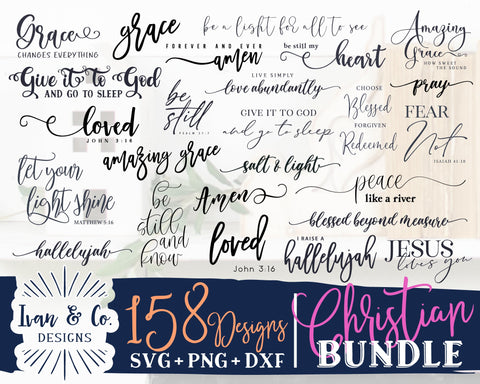 Grace
CHANGES EVERYTHING
grace
be a light for all to see
FOREVER AND EVER
amen
be still my
heart
Amazing
Grace
HOW SWEET
THE SOUND
Give it to God
AND GO TO SLEEP
be
still
PSALM
LIVE SIMPLY
love abundantly
CHOOSE
Blessed
FORGIVEN
Redeemed
pray
loved
JOHN 3:16
GIVE IT TO GOD
and go to sleep
FEAR
Not
ISAIAH 41:10
amazing grace
salt & light
let your
light shine
MATTHEW 5:16
be
still
and
know
Amen
peace
like a river
blessed beyond measure
hallelujah
loved
John 3:16
I RAISE A
hallelujah
JESUS
loves you
Ivan & Co.
DESIGNS
158 Designs
SVG + PNG + DXF
Christian
BUNDLE